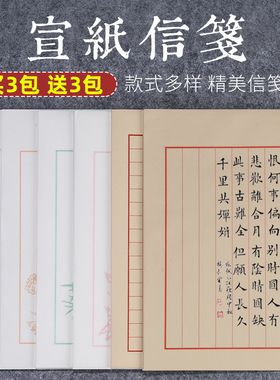 宣紙信箋
买3包 送3包
款式多样 精美信笺
恨何事偏向别時圓人有
悲歡離合月有陰晴圓缺
此事古難全但願人長久
千里共嬋娟